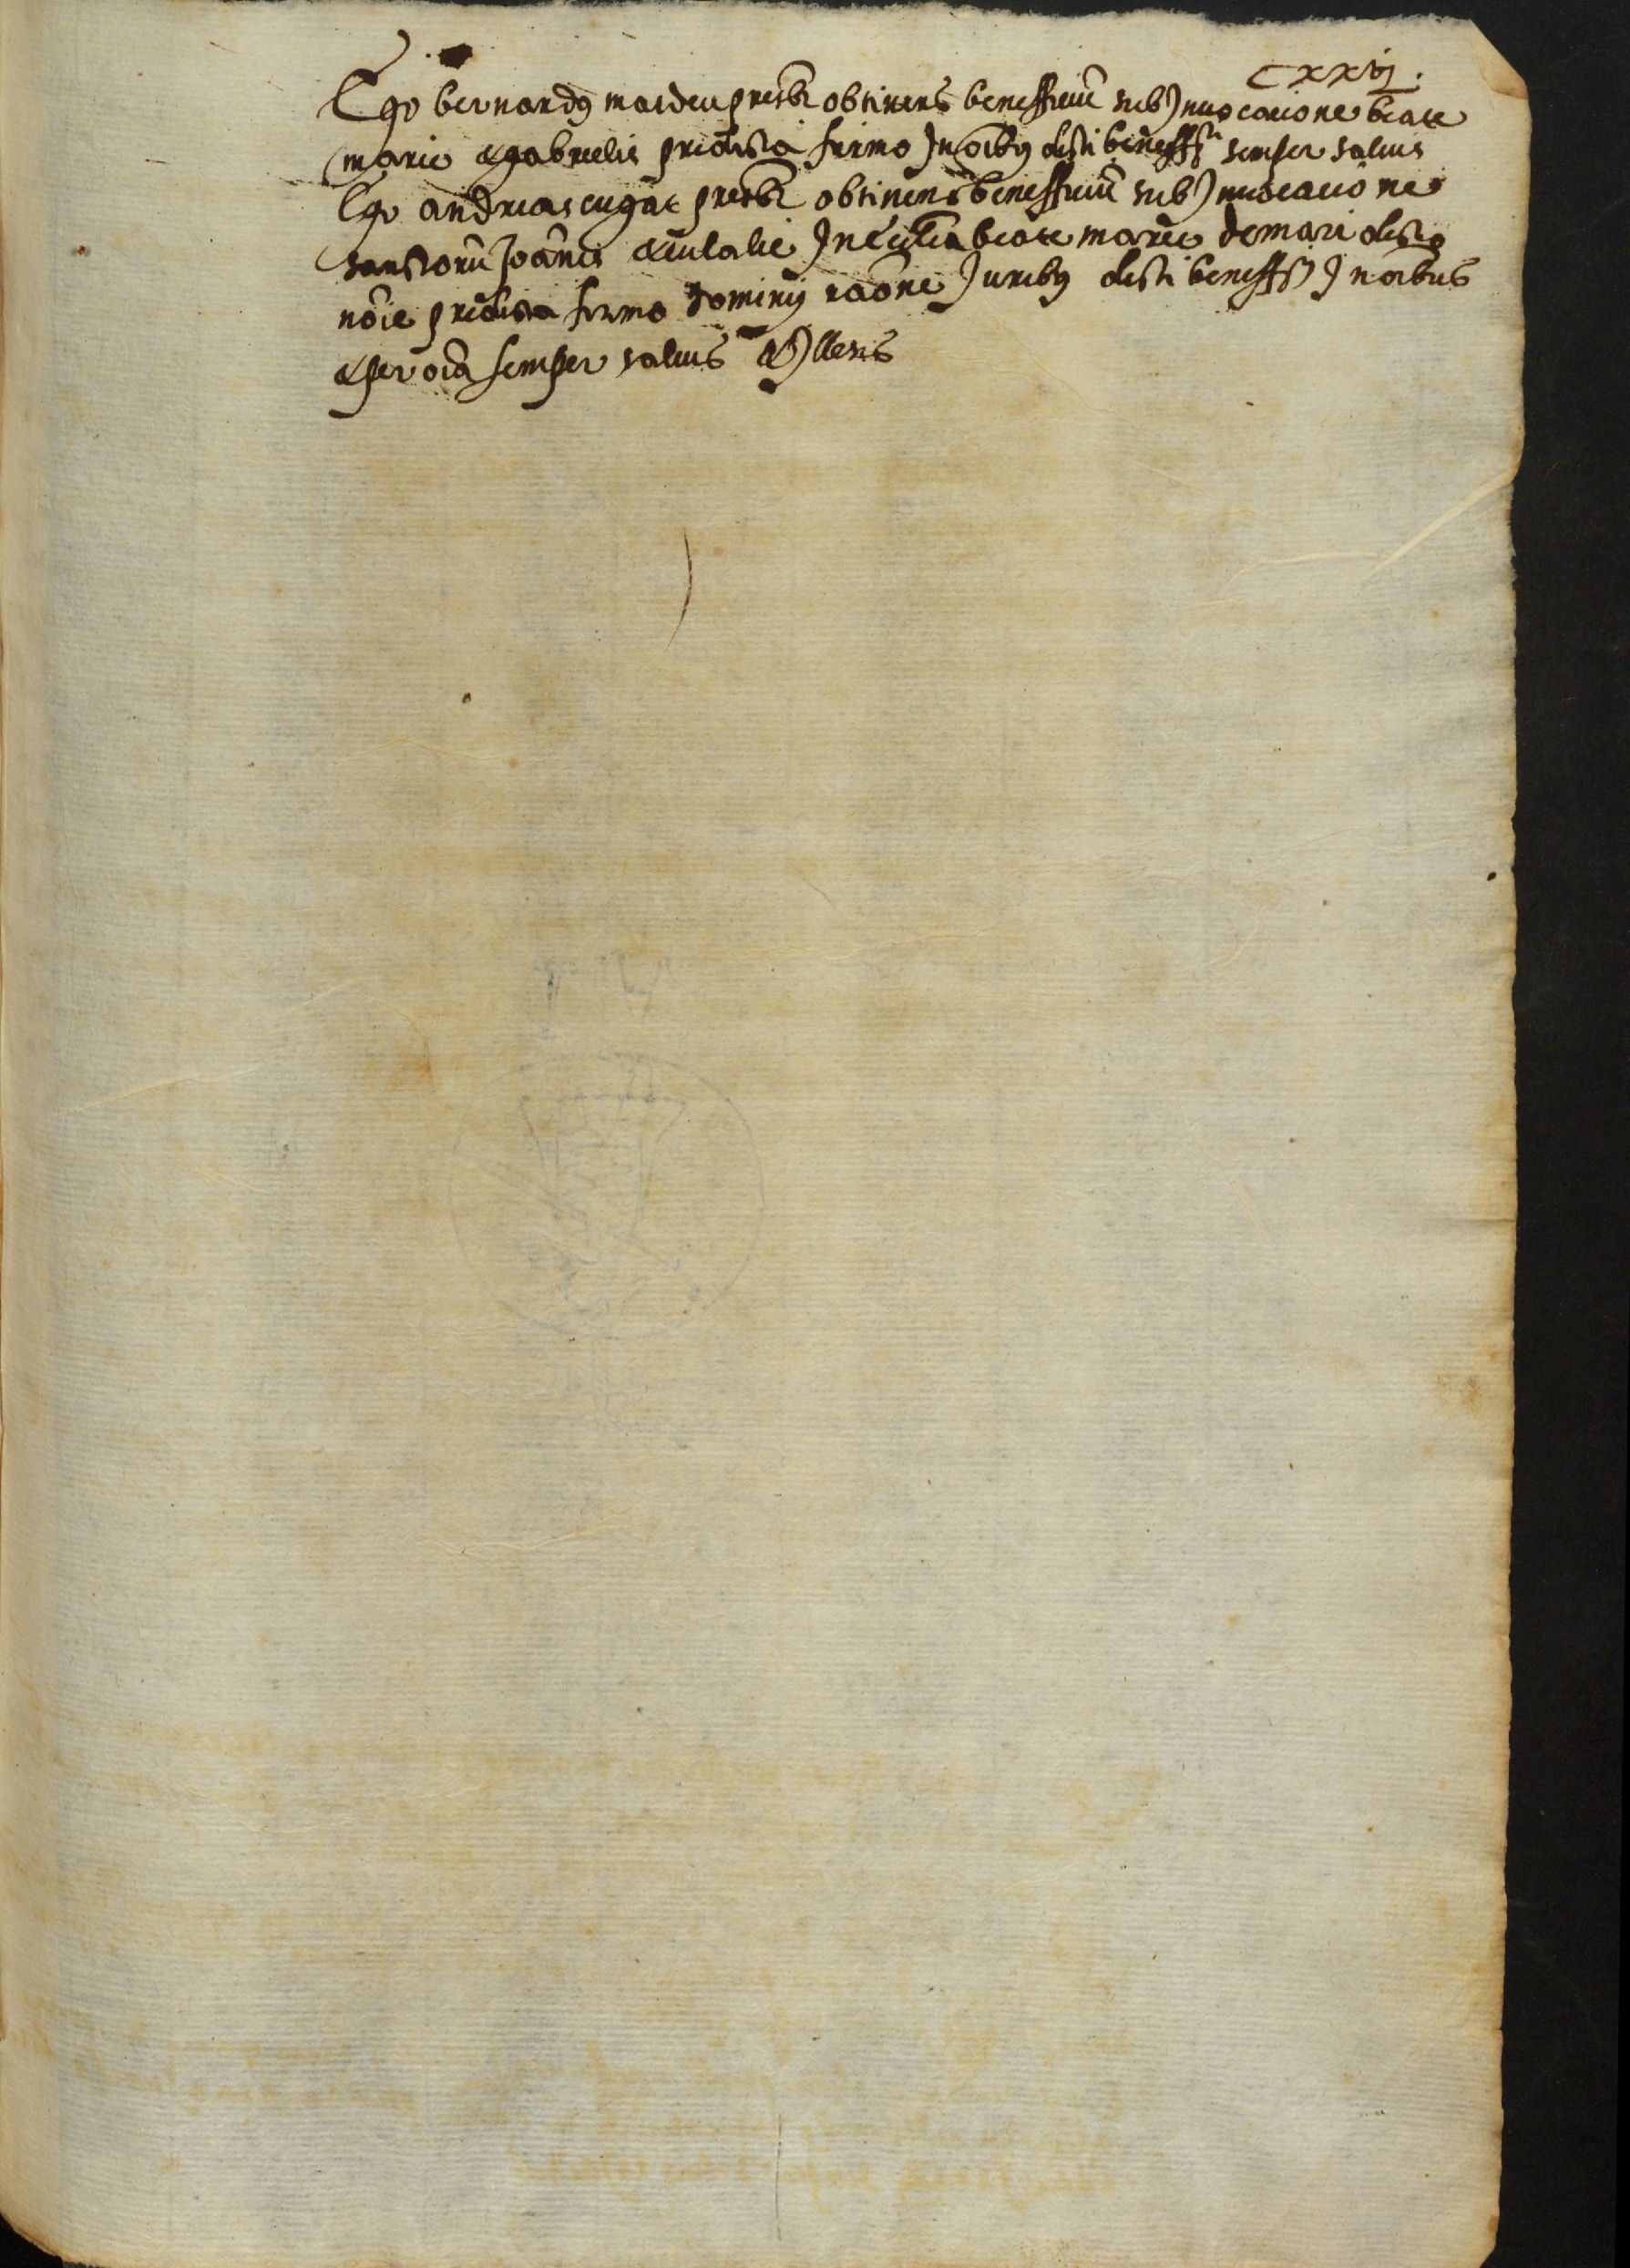 CXXVJ.
Ego bernardꝰ maideu presbr̄ obtinens benefficiū sub Jnuocacione beate
marie & gabrielis predicta firmo Jn oībꝰ dicti beneffiⁱ semper saluis
Ego andreas cugat presbr̄ obtinens benefficiū sub Jnuocacione
sanctorū Joānis & eulalie Jn ecclīa beate marie de mari dicto
noīe predicta firmo dominij raōne Juribꝰ dicti beneffi Jn oībus
& per oīa semper saluis & Jllesis